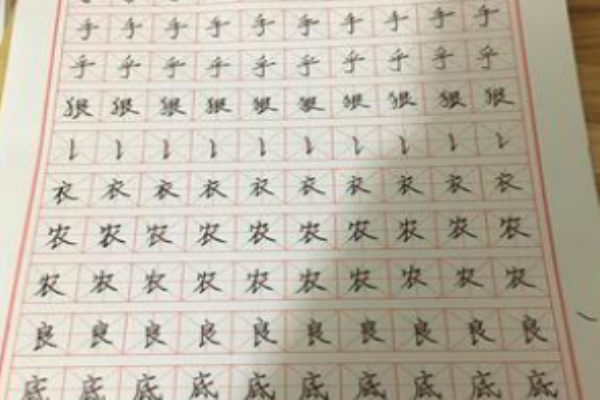 手手手手手手手手手手
乎乎乎乎乎乎乎乎乎乎
狠狠狠狠狠狠狠狠狠狠
衣衣衣衣衣衣衣衣衣衣
农农农农农农农农农农
农农农农农农农农农农
良良良良良良良良良良
底底底底底底底底底底